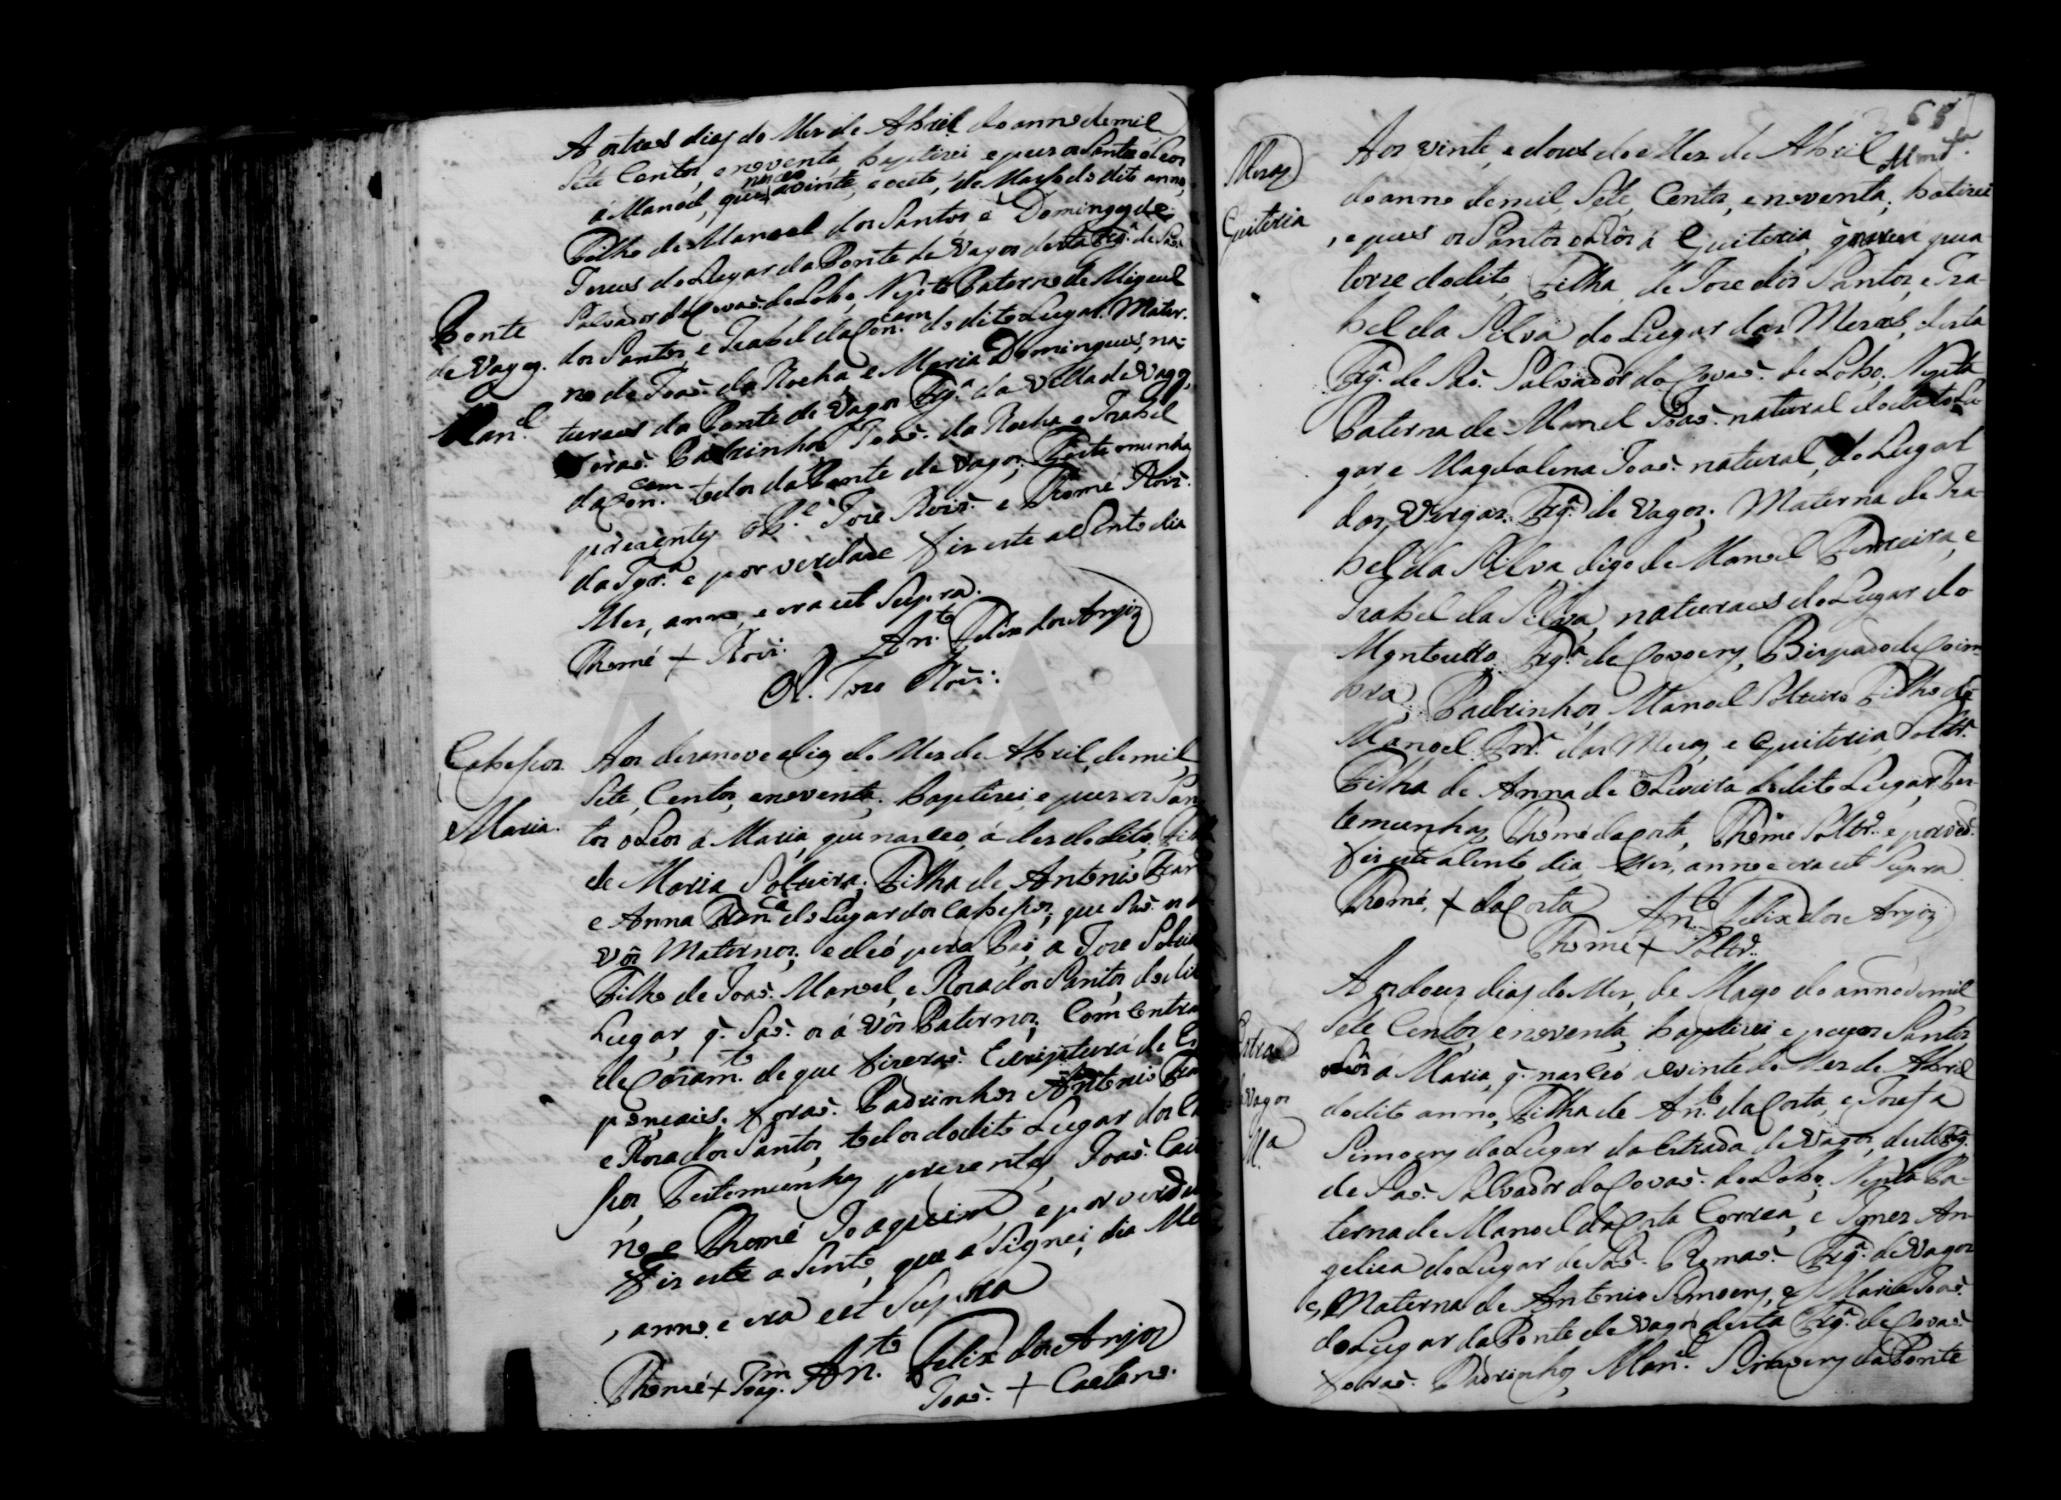 Aos tres dias do Mes de Abril do anno de mil
Sete Centos, e noventa, baptizei e puz os Santos oleos
á Manoel, que nasceo a vinte, e oito, de Março do dito anno,
Filho de Manoel dos Santos e Domingas de
Jesus do Lugar da Ponte de Vagos desta Frg.ª de Saõ
Salvador da Covaõ do Lobo, Neto Paterno de Miguel
dos Santos e Izabel da Con.cam do dito Lugar. Mater-
no de Joaõ da Rocha e Maria Domingues, na-
turaes da Ponte de Vagos Frg.ª da Villa de Vagos,
foraõ Padrinhos Joaõ da Rocha e Izabel
da Con.cam todos da Ponte de Vagos, Testemunhas
presentes o P.e Joze Roiz. e Thomé Roiz.
da Igr.ª e por verdade fiz este asento dia
Mes, anno, e era ut Supra.
Thomé + Roiz. An.to Felix dos Anjos
O P. Joze Roiz.
Ponte
de Vagos.
Man.el
Cabessos.
Maria.
Aos dezanove dias do Mes de Abril, de mil
Sete, Centos, e noventa, baptizei e puz os San
tos oleos á Maria, que nasceo, á des do dito, Filha
de Maria Solteira, Filha de Antonio
e Anna do Lugar dos Cabessos, que Saõ os A
vós Maternos, e deó para Pai, a Joze Solteiro
Filho de Joaõ Manoel, e Roza dos Santos, do dito
Lugar, q. Saõ os á Vós Paternos, Com
de Cazam.to de que fizeraõ Escriptura de
foraõ Padrinhos Antonio
e Roza dos Santos, todos do dito Lugar dos Ca
ssos, Testemunhas prezentes, Joaõ Caeta
no e Thomé Joaquim, e por verdade
fiz este asento, que asignei, dia Mes
, anno. e era ut Supra
Thomé + Joaq.m An.to Felix dos Anjos
Joaõ + Caetano.
Mezas
Quiteria
Aos vinte, e dous do Mes de Abril
do anno de mil, Sete, Centos, e noventa, batizei
, e puz os Santos oleos á Quiteria, q. nasceo a qua
torze do dito, Filha, de Joze dos Santos, e Iza-
bel da Silva do Lugar das Mezas, desta
Frg.ª de Saõ Salvador do Covaõ do Lobo, Neta
Paterna de Manoel Joaõ natural do dito Lu
gar e Magdalena Joaõ natural, do Lugar
das Vergas Frg.ª de Vagos, Materna de Iza-
bel da Silva digo de Manoel Ferreira, e
Izabel da Silva, naturaes do Lugar do
Montouro Frg.ª de Covoens, Bispado de Coim
bra, Padrinhos Manoel Solteiro Filho de
Manoel Frr.ª das Mezas, e Quiteria Soltr.ª
Filha de Anna de Oliveira do dito Lugar, Tes-
temunhas, Thomé da Costa, Thomé Soltr.º e por verd.
fiz este asento, dia, Mes, anno e era ut Supra.
Thomé, + da Costa An.to Felix dos Anjos
Thomé + Soltr.º
Estrada
de Vagos
M.ª
Aos dous dias do Mes, de Mayo do anno de mil
Sete Centos, e noventa, baptizei e puz os Santos
oleos á Maria, q. nasceó a vinte do Mes de Abril
do dito anno, Filha de An.to da Costa, e Josefa
Simoens do Lugar da Estrada de Vagos, desta Frg.ª
de Saõ Salvador do Covaõ do Lobo, Neta Pa-
terna de Manoel da Costa Correa, e Ignez An-
gelica do Lugar de Saõ Romaõ Frg.ª de Vagos
e, Materna de Antonio Simoens, e Maria Joaõ
do Lugar da Ponte de Vagos desta Frg.ª de Covaõ
foraõ Padrinhos, Man.el Simoens da Ponte